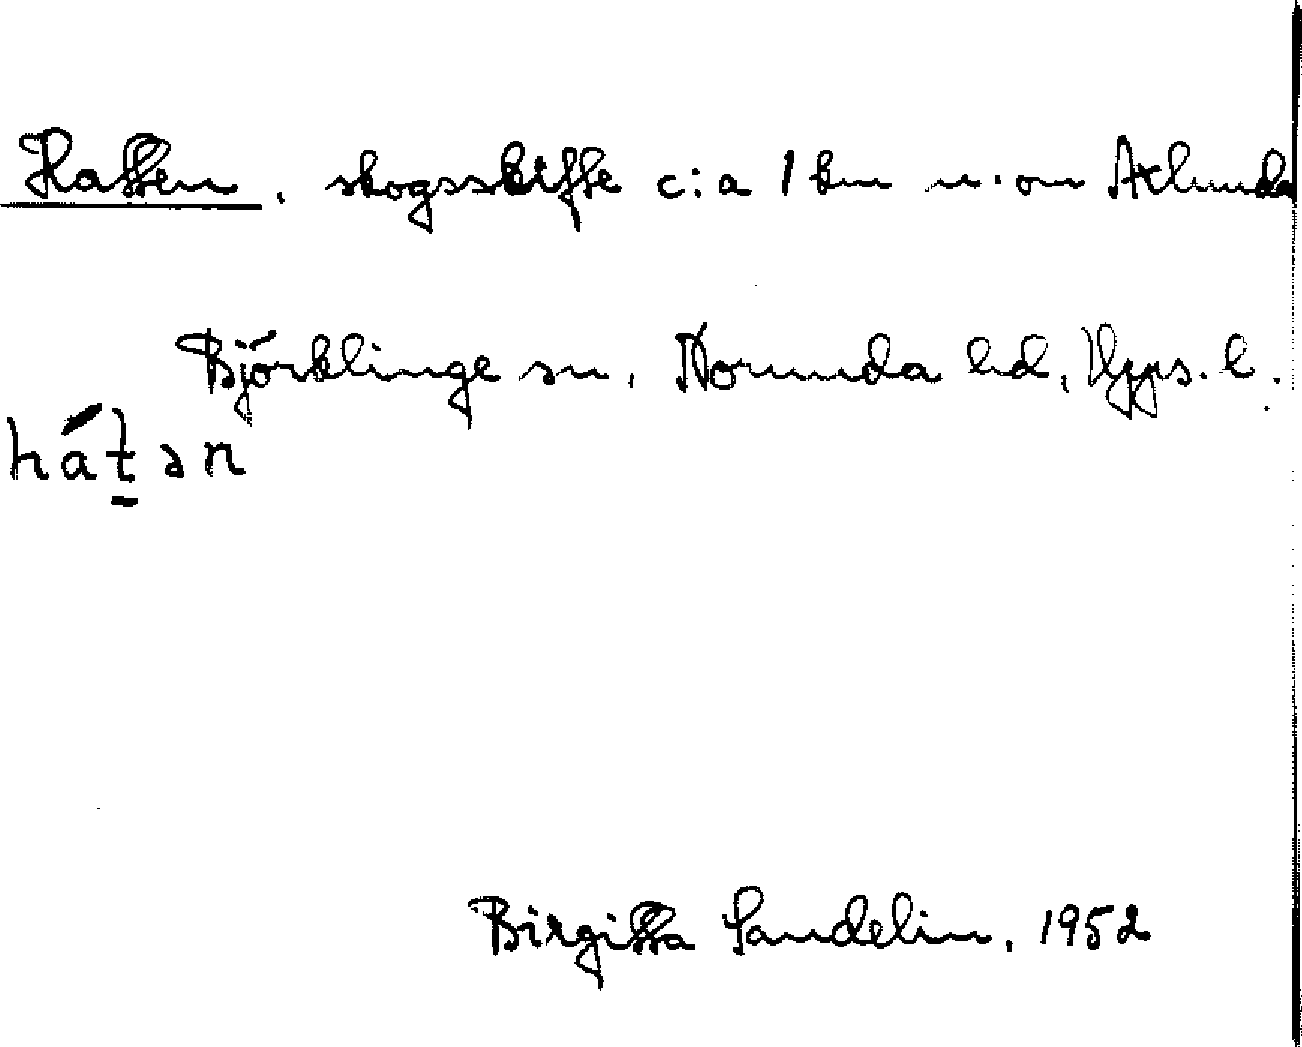 Hatten. skogsskifte c:a 1 km n. om Åklunda
Björklinge sn, Norunda hd, Upps. l.
hátən
Birgitta Sandelin, 1952